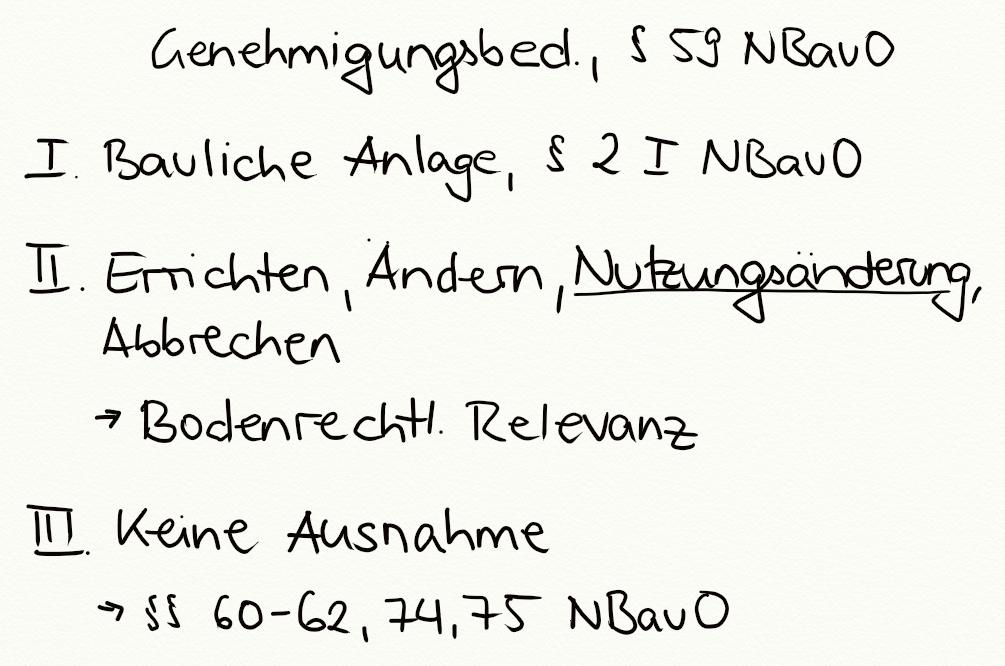 Genehmigungsbed., § 59 NBauO
I. Bauliche Anlage, § 2 I NBauO
II. Errichten, Ändern, Nutzungsänderung,
Abbrechen
→ Bodenrechtl. Relevanz
III. Keine Ausnahme
→ §§ 60-62, 74, 75 NBauO